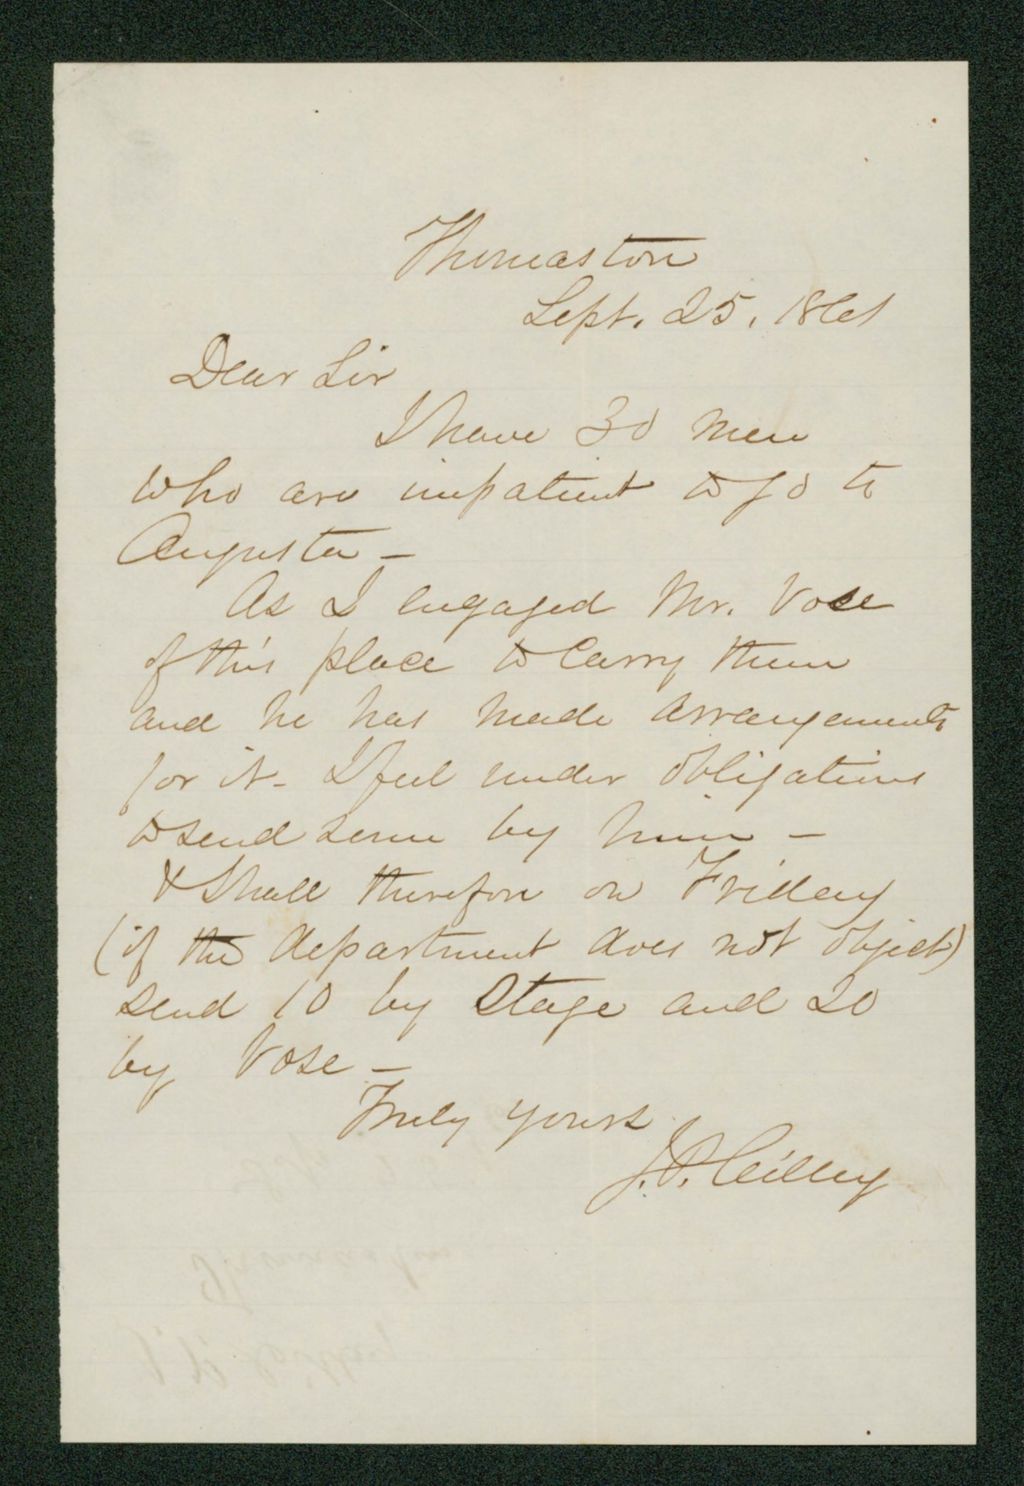 Thomaston
Sept. 25, 1861
Dear Sir
I have 30 men
who are impatient to go to
Augusta —
As I engaged Mr. Vose
of this place to carry them
and he has made arrangements
for it - I feel under obligations
to send some by him —
& Shall therefore on Friday
(if the department does not object)
send 10 by Stage and 20
by Vose —
Truly yours
J. P. Cilley